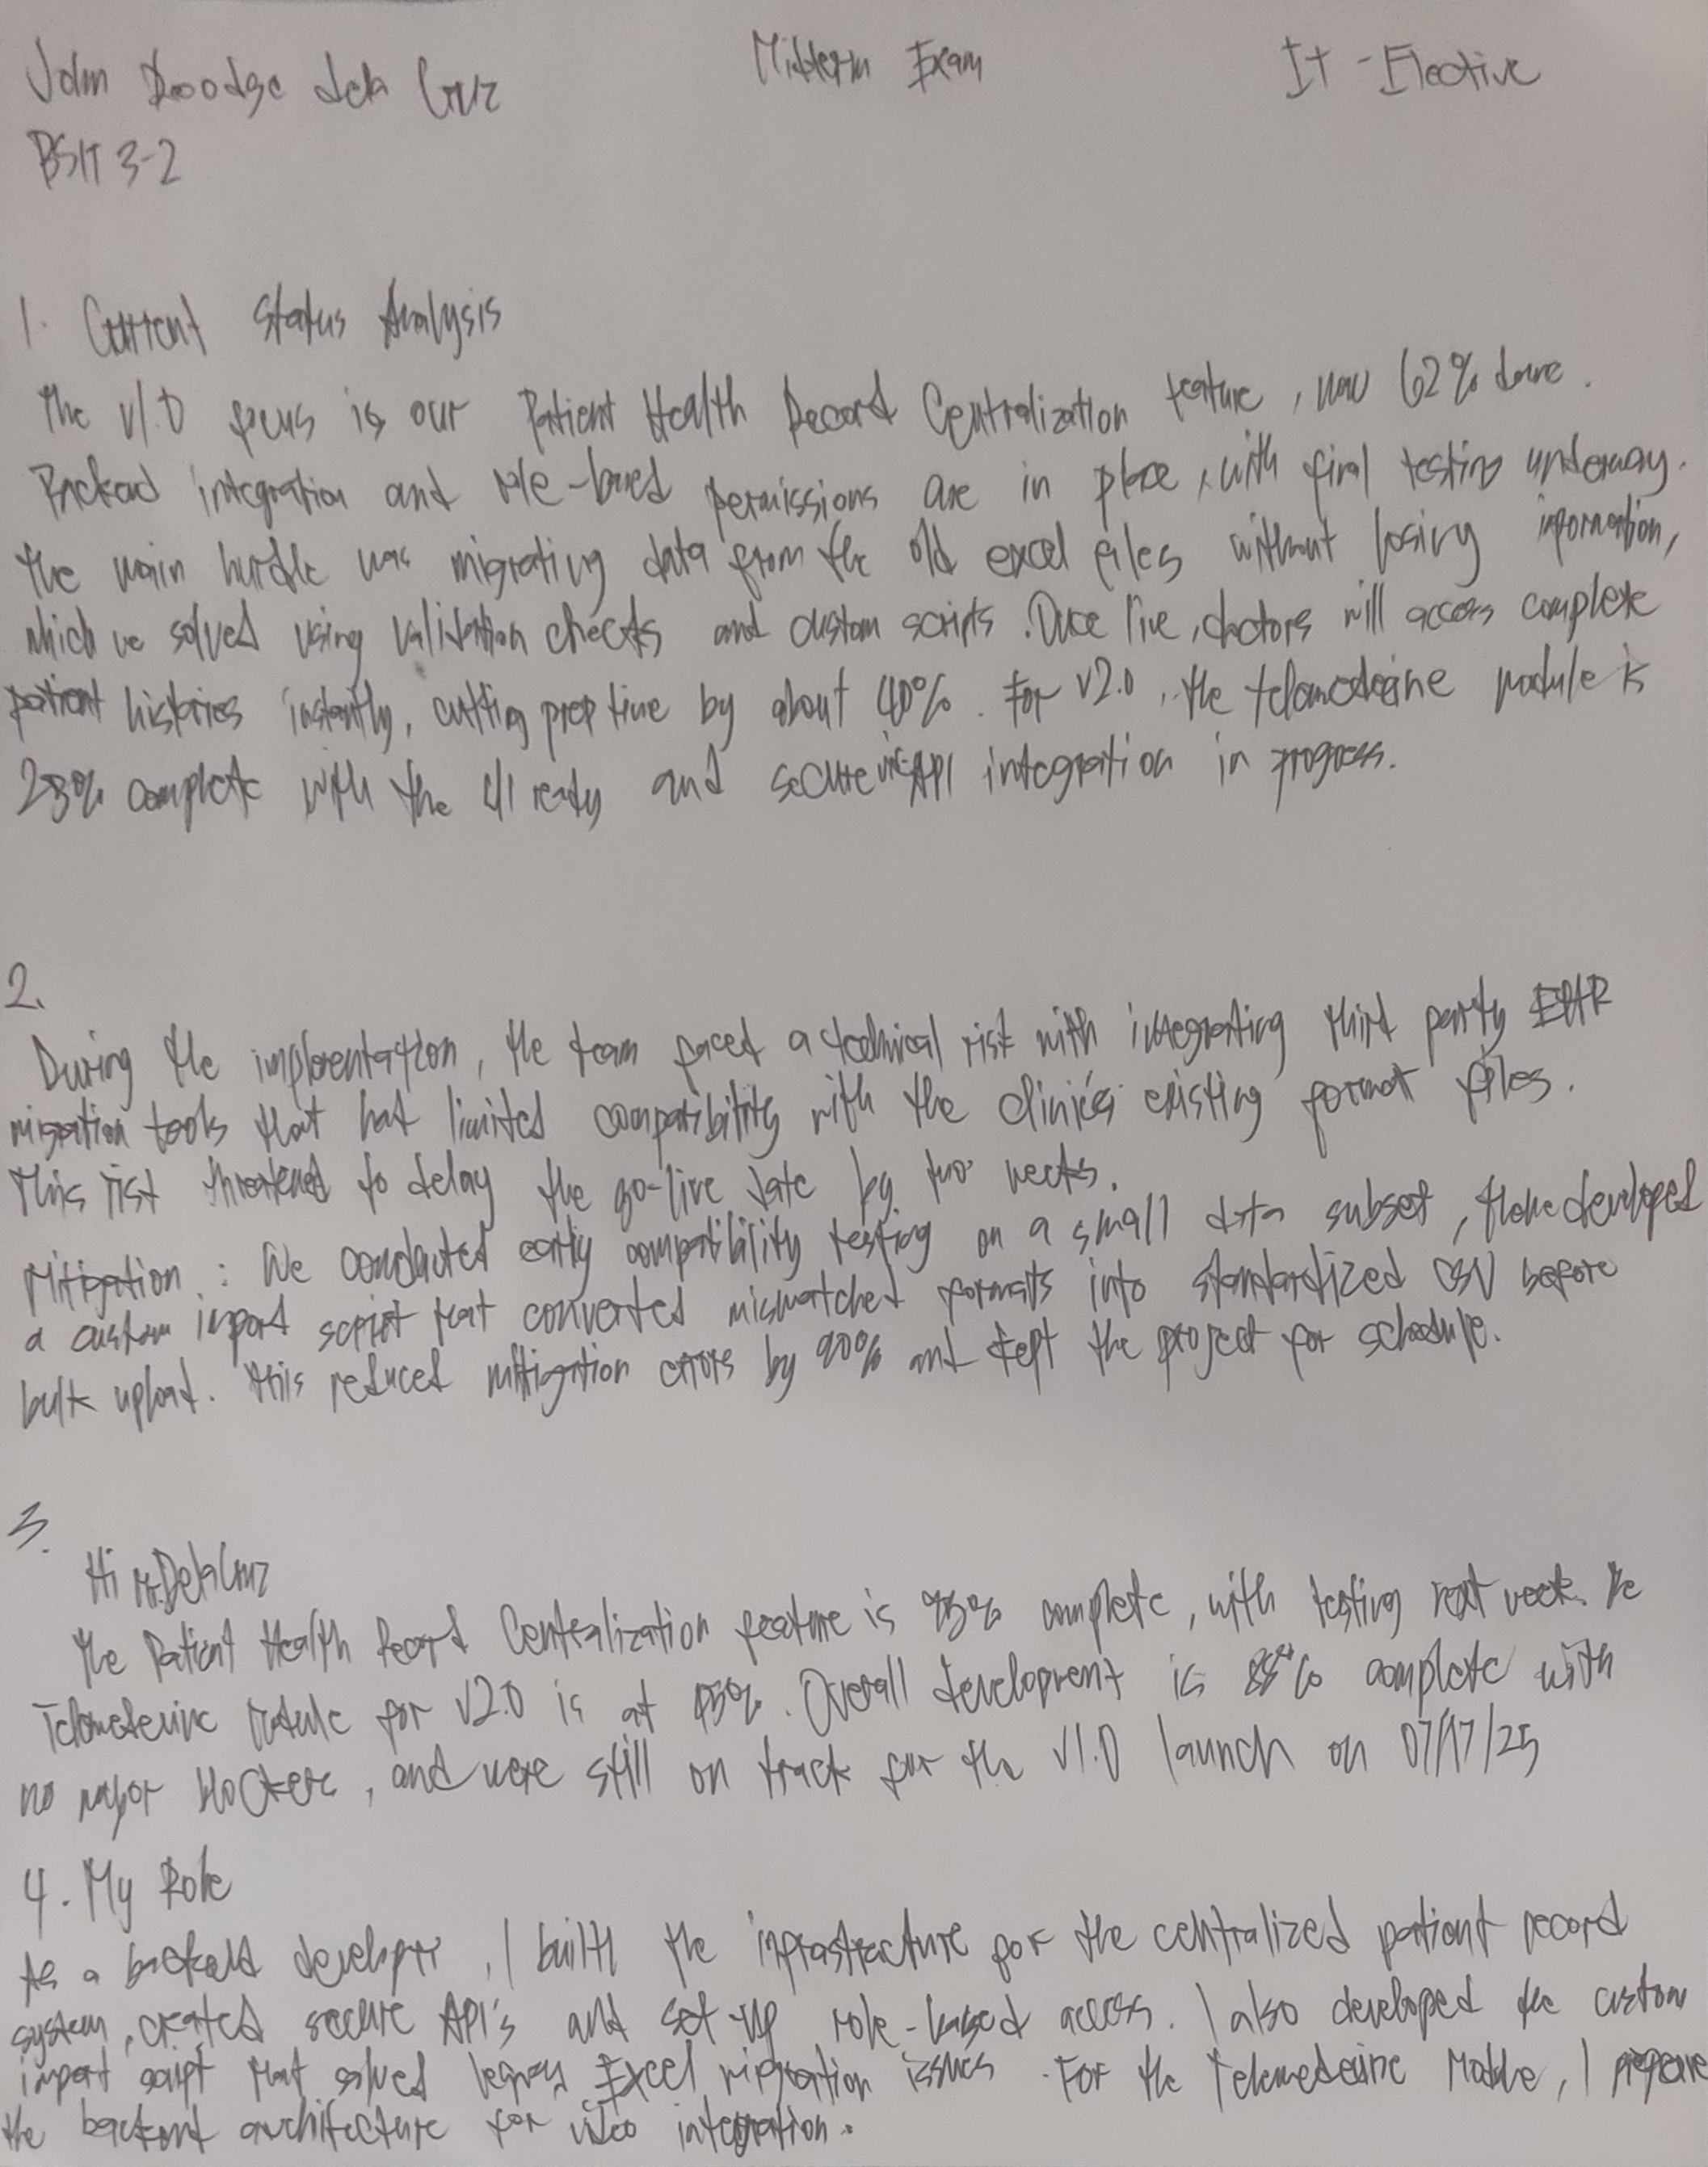 John Doodge dela Cruz
Midterm Exam
IT - Elective
BSIT 3-2
1. Current Status Analysis
The v1.0 focus is our Patient Health Record Centralization feature, now 62% done.
Backend integration and role-based permissions are in place, with final testing underway.
the main hurdle was migrating data from the old excel files without losing information,
which we solved using validation checks and custom scripts. Once live, doctors will access complete
patient histories instantly, cutting prep time by about 40%. For v2.0, the telemedecine module is
complete with the UI ready and secure API integration in progress.
2.
During the implementation, the team faced a technical risk with integrating third party EHR
migration tools that had limited compatibility with the clinic's existing format files.
This risk threatened to delay the go-live date by two weeks.
Mitigation : We conducted early compatibility testing on a small data subset, developed
a custom import script that converted mismatched formats into standardized CSV before
bulk upload. this reduced mitigation errors by 90% and kept the project for schedule.
3.
Hi Mr. Dela Cruz
The Patient Health Record Centralization feature is complete, with testing next week. The
Telemedecine Module for v2.0 is at. Overall development is complete with
no major blockers, and were still on track for the v1.0 launch on 07/17/25
4. My Role
As a backend developer, I built the infrastracture for the centralized patient record
system, created secure API's and set-up role-based access. I also developed the custom
import script that solved legacy Excel migration issues. For the Telemedecine Module, I prepare
the backend architecture for video integration.